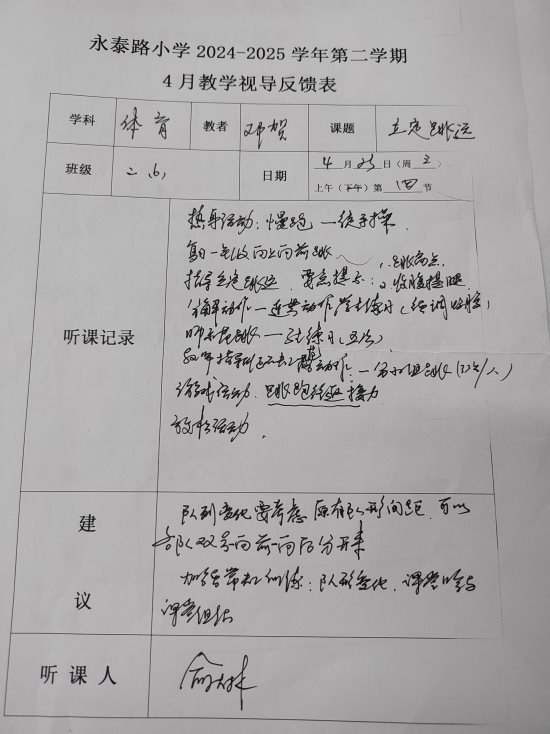 永泰路小学 2024-2025 学年第二学期
4 月教学视导反馈表
学科 体育 教者 邓贺 课题 立定跳远
班级 二(6) 日期 4 月 23 日（周 三）
上午（下午）第 四 节
听课记录
热身活动：慢跑 — 徒手操
复习 向上向前跳
指导立定跳远 要点提示：1、跳高点
2、收腹提腿
分解动作 — 连贯动作 学生练习（强调收腹）
师示范跳 — 练习（五次）
教师指导 动作 — 分组跳（次/人）
游戏活动 跳跑往返接力
放松活动
建议
队列变化要考虑原有队形间距，可以
各队双号向前一向后分开来
加强常规训练：队形变化，课堂口令与
课堂组织
听课人